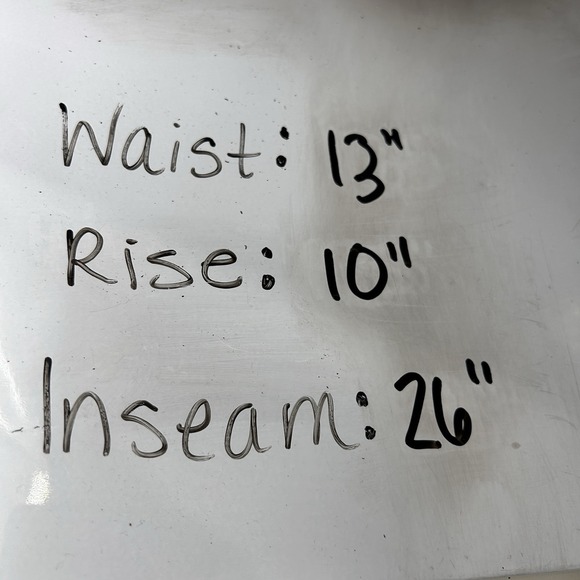 Waist: 13"
Rise: 10"
Inseam: 26"